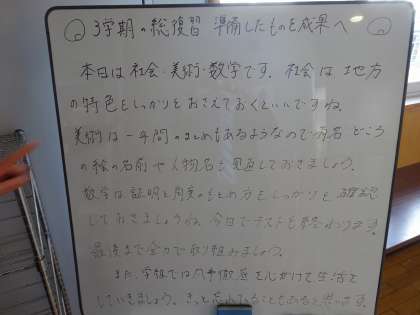 3学期の総復習 準備したものを成果へ
本日は社会・美術・数学です。社会は地方
の特色をしっかりとおさえておくといいですね。
美術は一年間のまとめもあるようなので
の絵の名前や人物名も見直しておきましょう。
数学は証明と角度のもとめ方をしっかりと確認
しておきましょうね。今日でテストも終わります。
最後まで全力で取り組みましょう。
また、学校では 徹底を心がけて生活を
していきましょう。きっと忘れていることもあると思います。